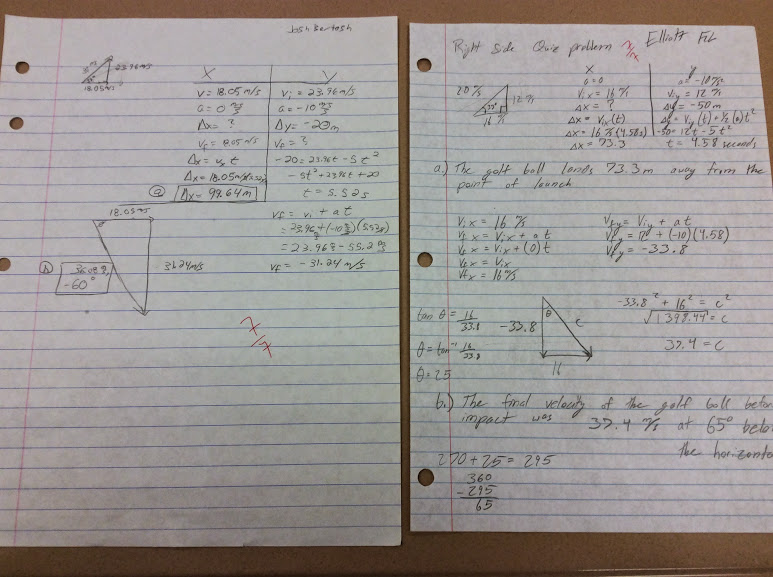 23.96m/s
18.05m/s
X
Y
V = 18.05 m/s
Vi = 23.96 m/s
a = 0 m/s
a = -10 m/s
Δx = ?
Δy = -20m
Vf = 18.05 m/s
Vf = ?
Δx = Vx t
-20 = 23.96t - 5t²
-5t² + 23.96t + 20
t = 5.52s
(a) Δx = 99.64m
18.05m/s
Vf = Vi + at
= 23.96 + (-10)(5.52s)
= 23.96 - 55.2
Vf = -31.24 m/s
31.24m/s
-60°
7/7
Right Side Quiz problem 7/7
Elliott
20 m/s
12 m/s
16 m/s
x
y
a = 0
a = -10 m/s
Vix = 16 m/s
Viy = 12 m/s
Δx = ?
Δy = -50m
Δx = Vix(t)
Δy = Viy(t) + ½(a)t²
Δx = 16 m/s (4.58s)
-50 = 12t - 5t²
Δx = 73.3
t = 4.58 seconds
a.) The golf ball lands 73.3 m away from the
point of launch
Vix = 16 m/s
Vfx = Vix + at
Vfx = Vix + (0)t
Vfx = Vix
Vfx = 16 m/s
Vfy = Viy + at
Vfy = 12 + (-10)(4.58)
Vfy = -33.8
tan θ = 16/33.8
θ = tan⁻¹ 16/33.8
θ = 25
-33.8
θ
c
16
-33.8² + 16² = c²
√1398.44 = c
37.4 = c
b.) The final velocity of the golf ball before
impact was 37.4 m/s at 65° below
the horizonta
270 + 25 = 295
360
- 295
65